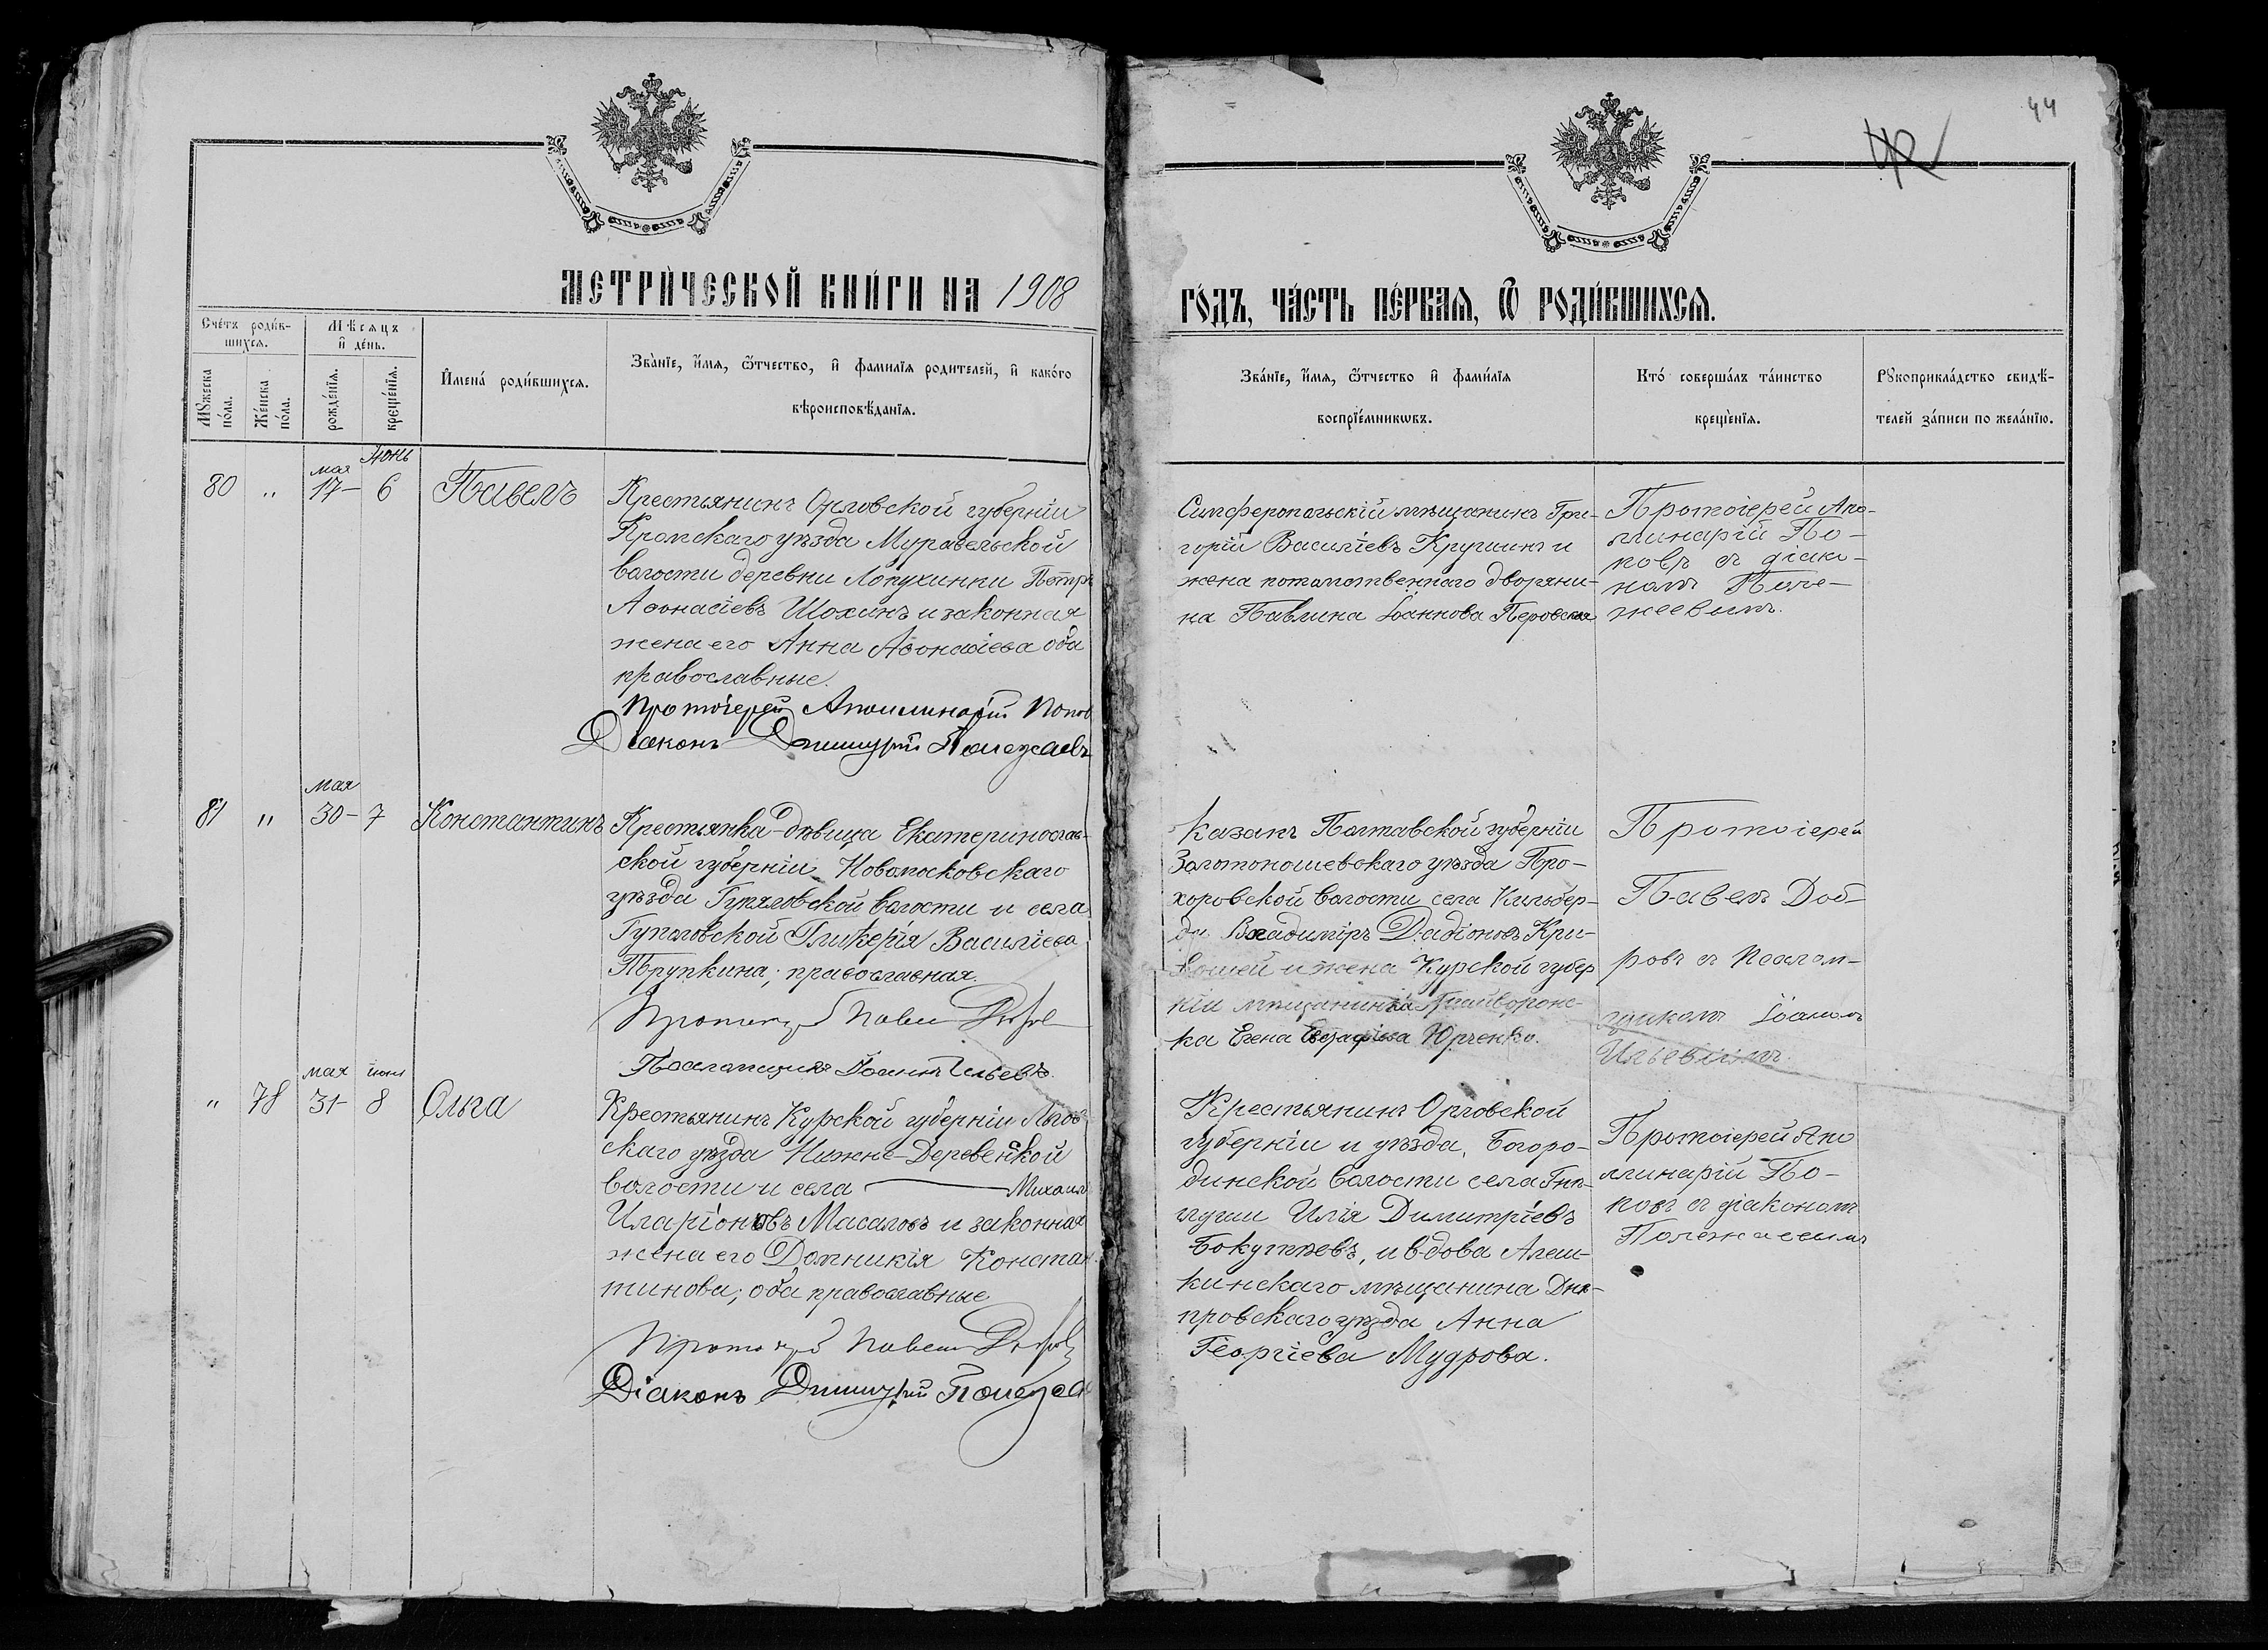 44
42
МЕТРИ́ЧЕСКОЙ КНИ́ГИ НА 1908
ГО́ДЪ, ЧА́СТЬ ПЕ́РВАЯ, Ѿ РОДИ́ВШИХСЯ.
Сче́тъ роди́в-
шихся.
Мѣсяцъ
и҆ де́нь.
Мꙋжеска
по́ла.
Же́нска
по́ла.
рожде́нїя.
креще́нїя.
И҆мена́ роди́вшихся.
Зва́нїе, и҆́мя, ѻ҆́тчество, и҆ фами́лїя родителей, и҆ како́го
вѣроисповѣ́данїя.
Зва́нїе, и҆́мя, ѻ҆́тчество и҆ фами́лїя
воспрїе́мникѡвъ.
Кто́ соверша́лъ та́инство
креще́нїя.
Рꙋкоприкла́дство свидѣ́-
телей за́писи по жела́нїю.
мая Июнь
80 " 17- 6 Павелъ
Крестьянинъ Орловской губерніи
Кромскаго уѣзда Муравельской
волости деревни Лопухинки Петръ
Аѳонасіевъ Шохинъ и законная
жена его Анна Аѳонасіева оба
православные.
Протоіерей Аполлинарій Попов
Діаконъ Димитрій Полежаевъ
Симферопольскій мѣщанинъ Гри-
горій Василіевъ Кругликъ и
жена потомственнаго дворяни-
на Павлина Іоаннова Перовская
Протоіерей Апо-
линарій По-
повъ съ діако-
номъ Поле-
жаевымъ.
мая
81 " 30- 7 Константинъ
Крестьянка-дѣвица Екатеринослав-
ской губерніи Новомосковскаго
уѣзда Гупаловской волости и села
Гупаловской Гликерія Василіева
Трупкина; православная.
Протоіерей Павелъ Добровъ
Псаломщикъ Іоаннъ Ильевъ.
Казакъ Полтавской губерніи
Золотоношевскаго уѣзда Про-
хоровской волости села Кильбер-
да Владиміръ Радіоновъ Кри-
вошей и жена Курской губер
ніи мѣщанинка Грайворонс-
ка Елена Юрченко.
Протоіерей
Павелъ Доб-
ровъ съ псалом-
щикомъ Іоанномъ
Ильевымъ.
мая июня
" 78 31- 8 Ольга
Крестьянинъ Курской губерніи Льгов-
скаго уѣзда Нижне-Деревенской
волости и села — Михаилъ
Иларіоновъ Масаловъ и законная
жена его Домникія Констан-
тинова; оба православные
Протоіерей Павелъ Добровъ
Діаконъ Димитрій Полежа
Крестьянинъ Орловской
губерніи и уѣзда, Богоро-
динской волости села Гнѣ-
Илія Димитріевъ
и вдова Алеш-
кинскаго мѣщанина Днѣ-
провскаго уѣзда Анна
Георгіева Мудрова.
Протоіерей Апо
линарій По-
повъ съ діакономъ
Полежаевымъ